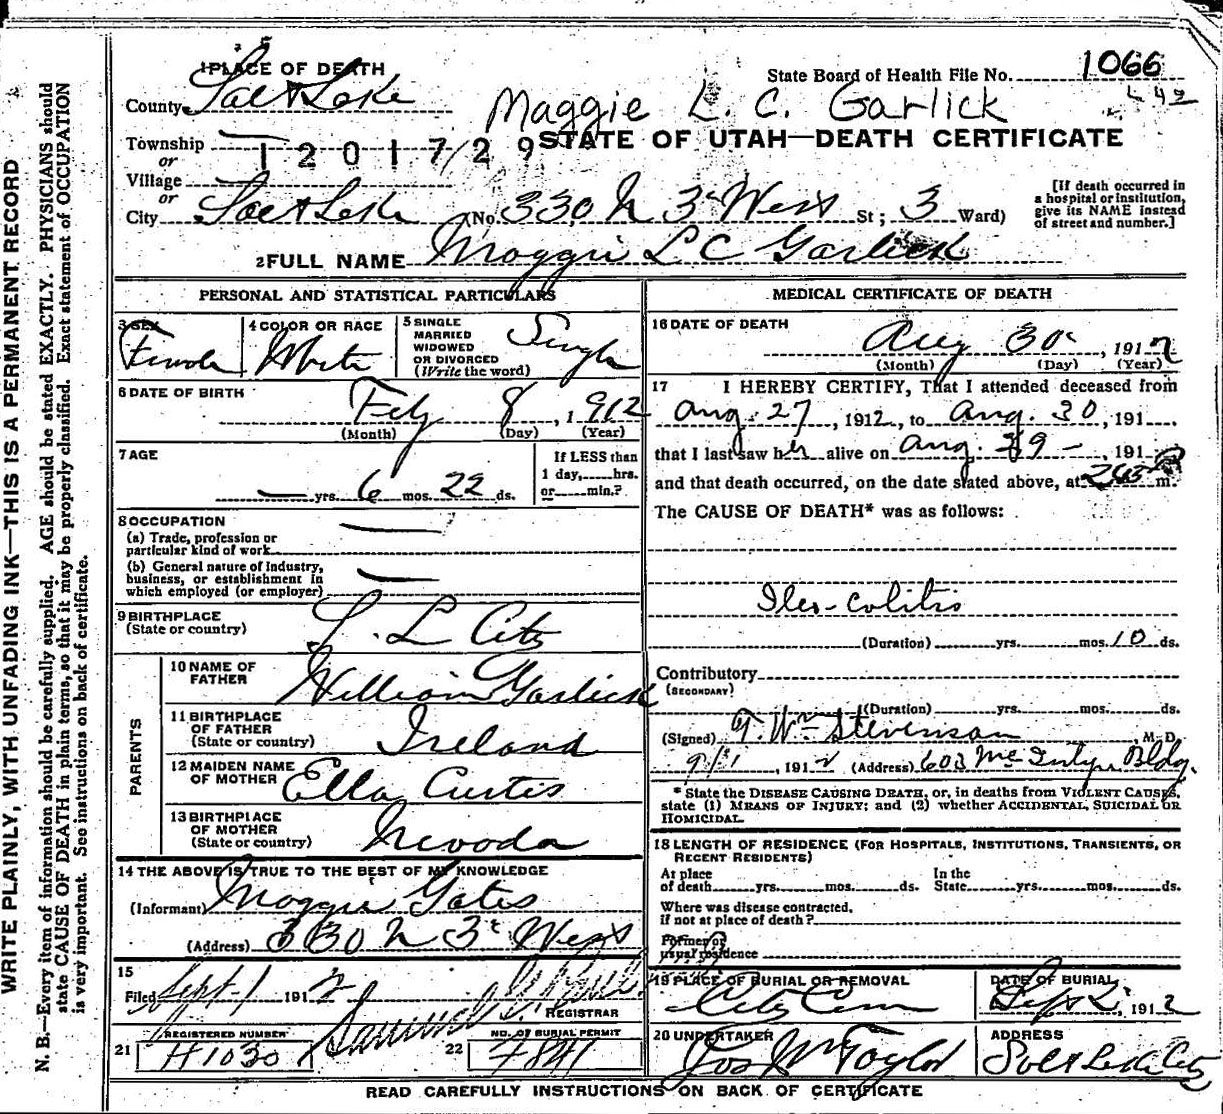 1 PLACE OF DEATH
State Board of Health File No. 1066
County Salt Lake
Maggie L. C. Garlick
Township
1201729
STATE OF UTAH—DEATH CERTIFICATE
or
Village
or
City Salt Lake (No. 330 N 3d West St; 3 Ward)
[If death occurred in a hospital or institution, give its NAME instead of street and number.]
2 FULL NAME Maggie L C Garlick
PERSONAL AND STATISTICAL PARTICULARS
3 SEX
Female
4 COLOR OR RACE
White
5 SINGLE
MARRIED
WIDOWED
OR DIVORCED
(Write the word)
Single
6 DATE OF BIRTH
Feby 8, 1912
(Month) (Day) (Year)
7 AGE
— yrs. 6 mos. 22 ds.
If LESS than
1 day, hrs.
or min.?
8 OCCUPATION
(a) Trade, profession or
particular kind of work
(b) General nature of industry,
business, or establishment in
which employed (or employer)
9 BIRTHPLACE
(State or country)
S. L City
PARENTS
10 NAME OF
FATHER
William Garlick
11 BIRTHPLACE
OF FATHER
(State or country)
Ireland
12 MAIDEN NAME
OF MOTHER
Ella Curtis
13 BIRTHPLACE
OF MOTHER
(State or country)
Nevada
14 THE ABOVE IS TRUE TO THE BEST OF MY KNOWLEDGE
(Informant) Maggie Gates
(Address) 330 N 3d West
15
Filed Sept 1 1912
REGISTRAR
REGISTERED NUMBER
21 H1030
NO. OF BURIAL PERMIT
22 7841
MEDICAL CERTIFICATE OF DEATH
16 DATE OF DEATH
Aug 30, 1912
(Month) (Day) (Year)
17 I HEREBY CERTIFY, That I attended deceased from
Aug. 27, 1912, to Aug. 30, 191
that I last saw her alive on Aug. 29 —, 191
and that death occurred, on the date stated above, at m.
The CAUSE OF DEATH* was as follows:
Ileo-colitis
(Duration) yrs. mos. 10 ds.
Contributory
(SECONDARY)
(Duration) yrs. mos. ds.
(Signed) T. Wm Stevenson, M. D.
9/1, 1912 (Address) 603 McIntyre Bldg.
* State the DISEASE CAUSING DEATH, or, in deaths from VIOLENT CAUSES,
state (1) MEANS OF INJURY; and (2) whether ACCIDENTAL, SUICIDAL OR
HOMICIDAL.
18 LENGTH OF RESIDENCE (FOR HOSPITALS, INSTITUTIONS, TRANSIENTS, OR
RECENT RESIDENTS)
At place
of death yrs. mos. ds.
In the
State yrs. mos. ds.
Where was disease contracted,
if not at place of death?
Former or
usual residence
19 PLACE OF BURIAL OR REMOVAL
City Cem
DATE OF BURIAL
Sept 2, 1912
20 UNDERTAKER
Jos Wm Taylor
ADDRESS
Salt Lake City
READ CAREFULLY INSTRUCTIONS ON BACK OF CERTIFICATE
WRITE PLAINLY, WITH UNFADING INK—THIS IS A PERMANENT RECORD
N. B.—Every item of information should be carefully supplied. AGE should be stated EXACTLY. PHYSICIANS should
state CAUSE OF DEATH in plain terms, so that it may be properly classified. Exact statement of OCCUPATION
is very important. See instructions on back of certificate.